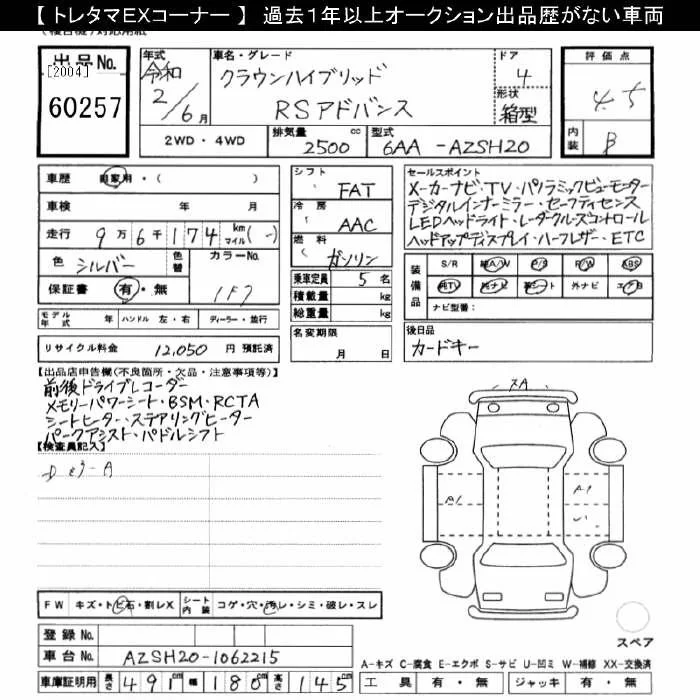 【トレタマEXコーナー】 過去1年以上オークション出品歴がない車両
出品No. [2004] 60257
年式 令和 2/6月
車名・グレード クラウンハイブリッド RSアドバンス
ドア 4
形状 箱型
評価点 4.5
内装 B
2WD・4WD
排気量 2500 cc
型式 6AA-AZSH20
車歴 自家用・( )
車検 年 月
走行 9万6千174 km マイル(-)
色 シルバー 色替 カラーNo. 1F7
保証書 有・無
モデル年式 年 ハンドル 左・右 ディーラー・並行
リサイクル料金 12,050 円 預託済
シフト FAT
冷房 AAC
燃料 ガソリン
乗車定員 5名
積載量 kg
総重量 kg
名変期限 月 日
セールスポイント
メーカーナビ・TV・パノラミックビューモニター
デジタルインナーミラー・セーフティセンス
LEDヘッドライト・レーダークルーズコントロール
ヘッドアップディスプレイ・ハーフレザー・ETC
装備品 S/R 純A/W P/S P/W ABS
純TV 純ナビ 革シート 外ナビ エアB
ナビ型番:
後日品
カードキー
【出品店申告欄(不良箇所・欠品・注意事項等)】
前後ドライブレコーダー
メモリーパワーシート・BSM・RCTA
シートヒーター・ステアリングヒーター
パークアシスト・パドルシフト
【検査員記入】
スA
A1
A1
FW キズ・トビ石・割レX シート内装 コゲ・穴・汚レ・シミ・破レ・スレ
登録No.
車台No. AZSH20-1062215
車庫証明用 長さ 491cm 幅 180cm 高さ 145cm
スペア
A-キズ C-腐食 E-エクボ S-サビ U-凹ミ W-補修 XX-交換済
工具 有・無 ジャッキ 有・無